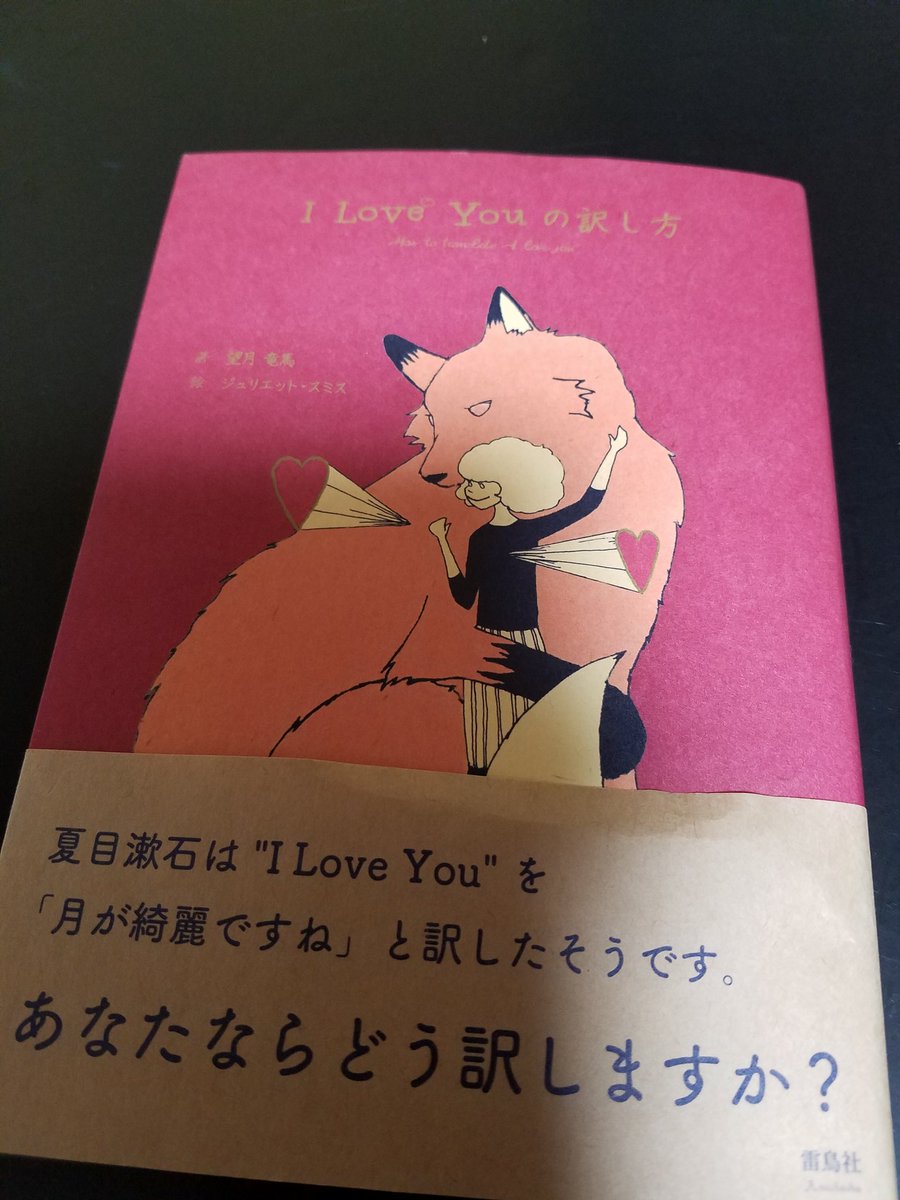 I Love You の訳し方
How to translate "I love you"
著 望月 竜馬
絵 ジュリエット・スミス
夏目漱石は "I Love You" を
「月が綺麗ですね」と訳したそうです。
あなたならどう訳しますか?
雷鳥社